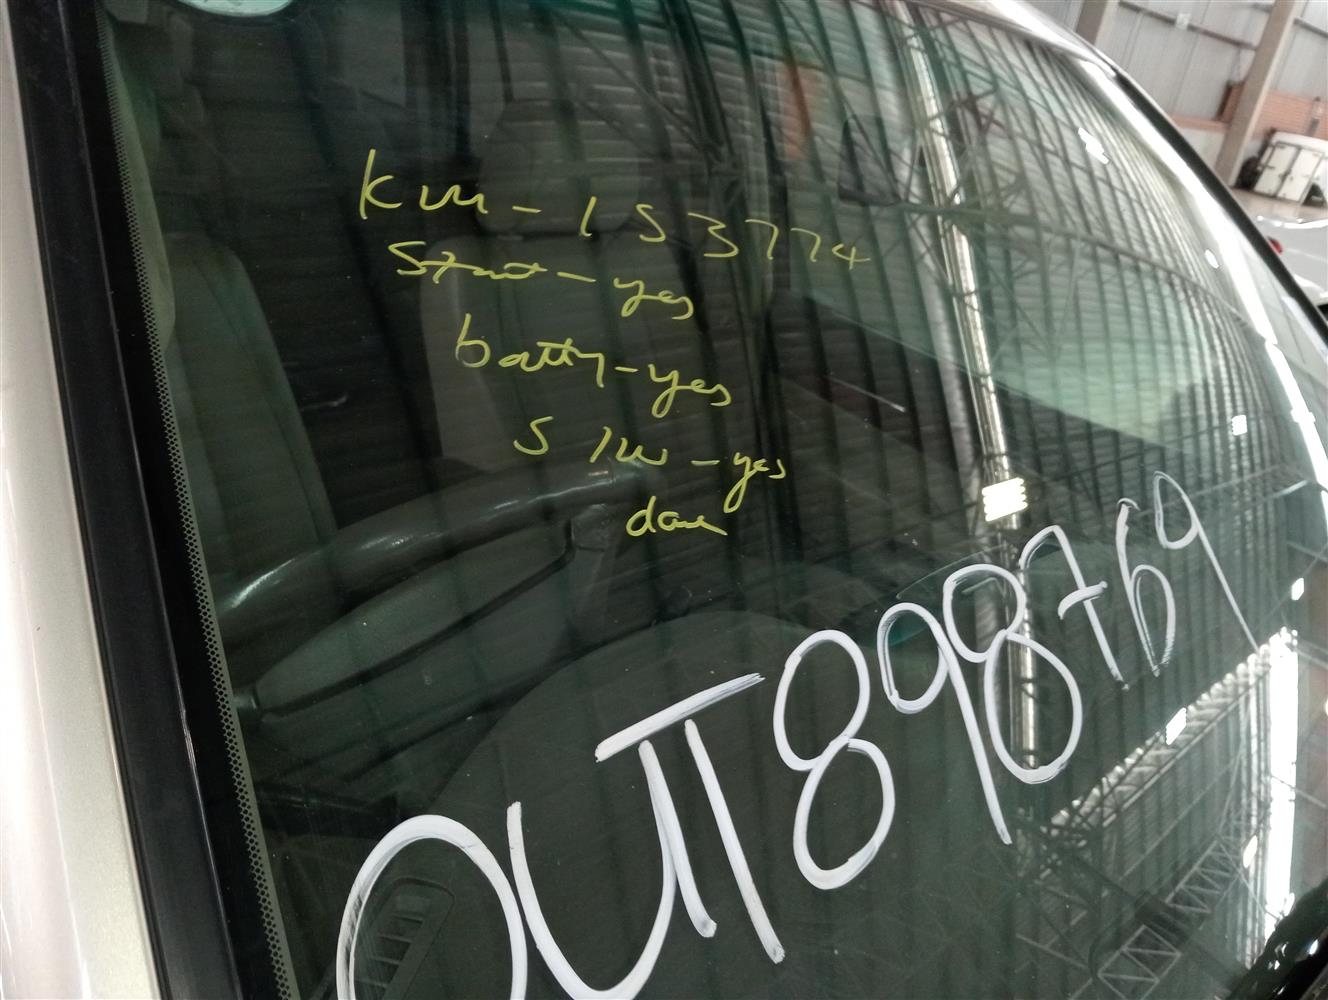 km - 153774
Start - yes
batty - yes
S/W - yes
done
OUT898769